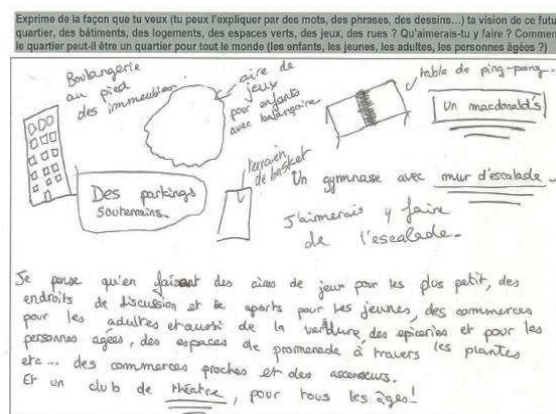 Exprime de la façon que tu veux (tu peux l'expliquer par des mots, des phrases, des dessins...) ta vision de ce futu
quartier, des bâtiments, des logements, des espaces verts, des jeux, des rues ? Qu'aimerais-tu y faire ? Commen
le quartier peut-il être un quartier pour tout le monde (les enfants, les jeunes, les adultes, les personnes âgées ?)
Boulangerie
au pied
des immeubles.
aire de
jeux
pour enfants
avec balançoire.
table de ping-pong.
Un macdonald's
terrain
de basket
Des parkings
souterrains.
Un gymnase avec mur d'escalade.
J'aimerais y faire
de l'escalade.
Je pense qu'en faisant des aires de jeux pour les plus petit, des
endroits de discussion et de sports pour les jeunes, des commerces
pour les adultes et aussi de la verdure, des epiceries et pour les
personnes agées, des espaces de promenade à travers les plantes
etc... des commerces proches et des ascenseurs.
Et un club de théatre, pour tous les âges!